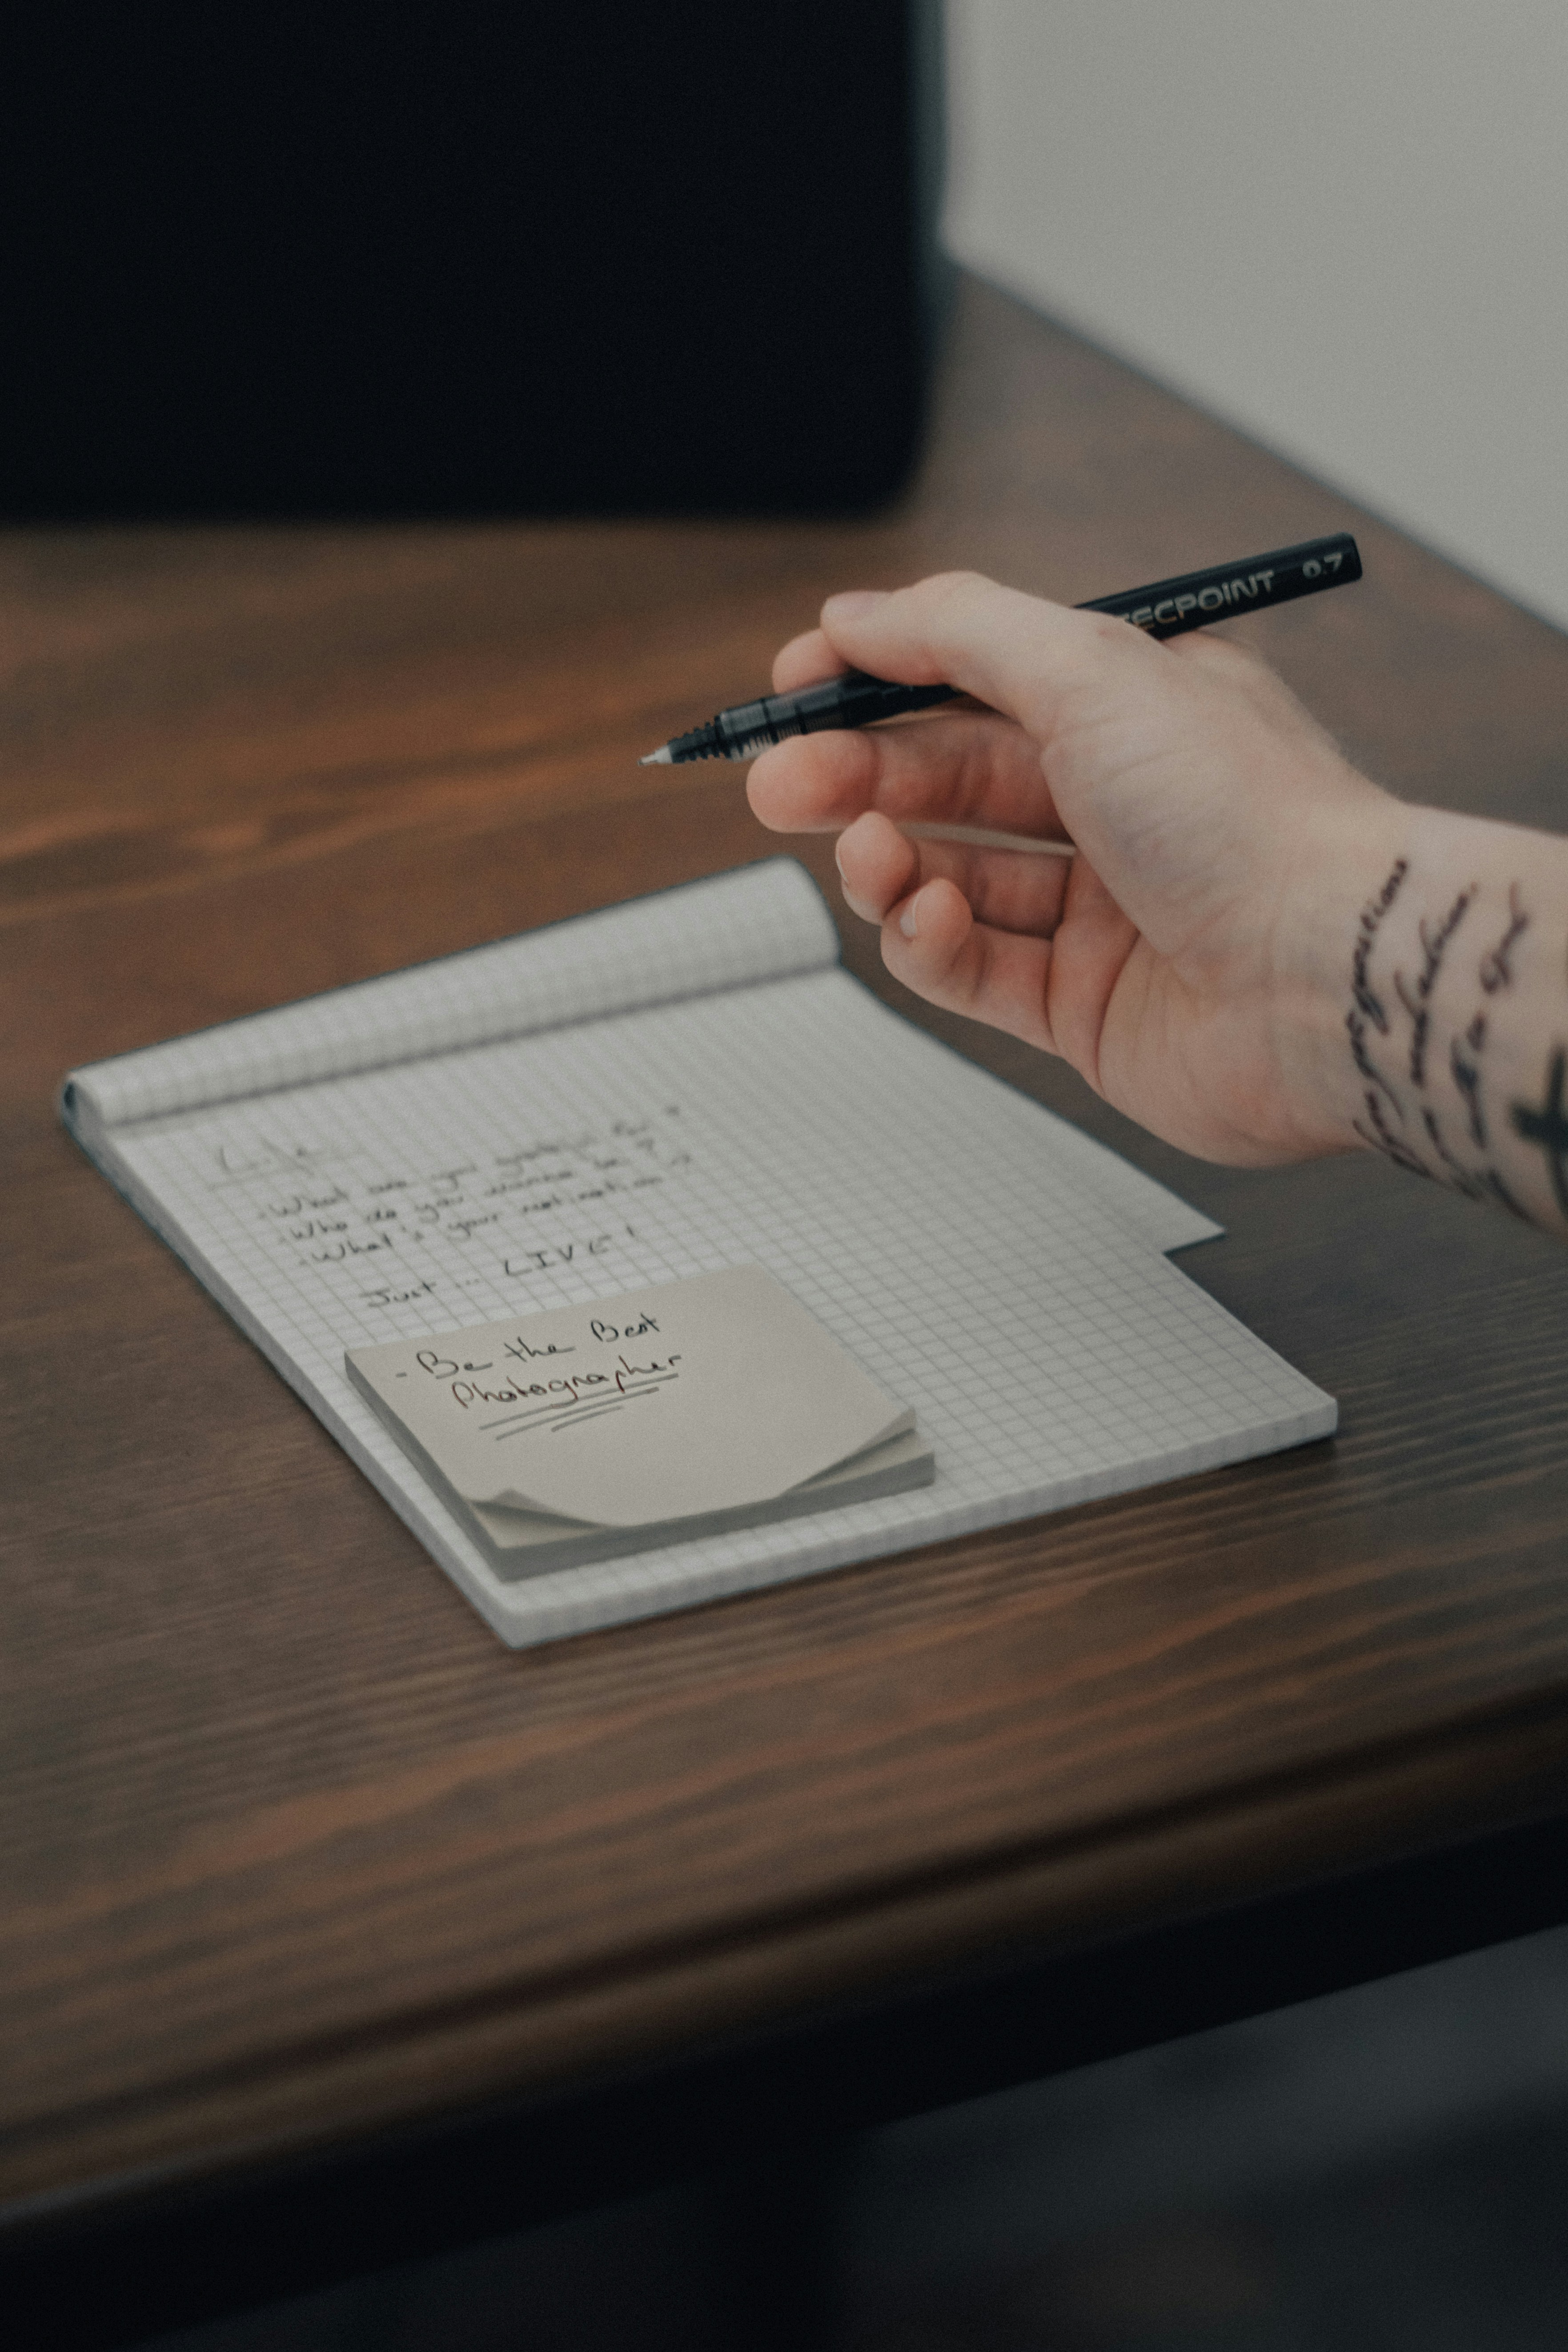 TECPOINT 0.7
Life
- What are you grateful for?
- Who do you wanna be?
- What's your motivation?
Just ... LIVE!
- Be the Best
Photographer